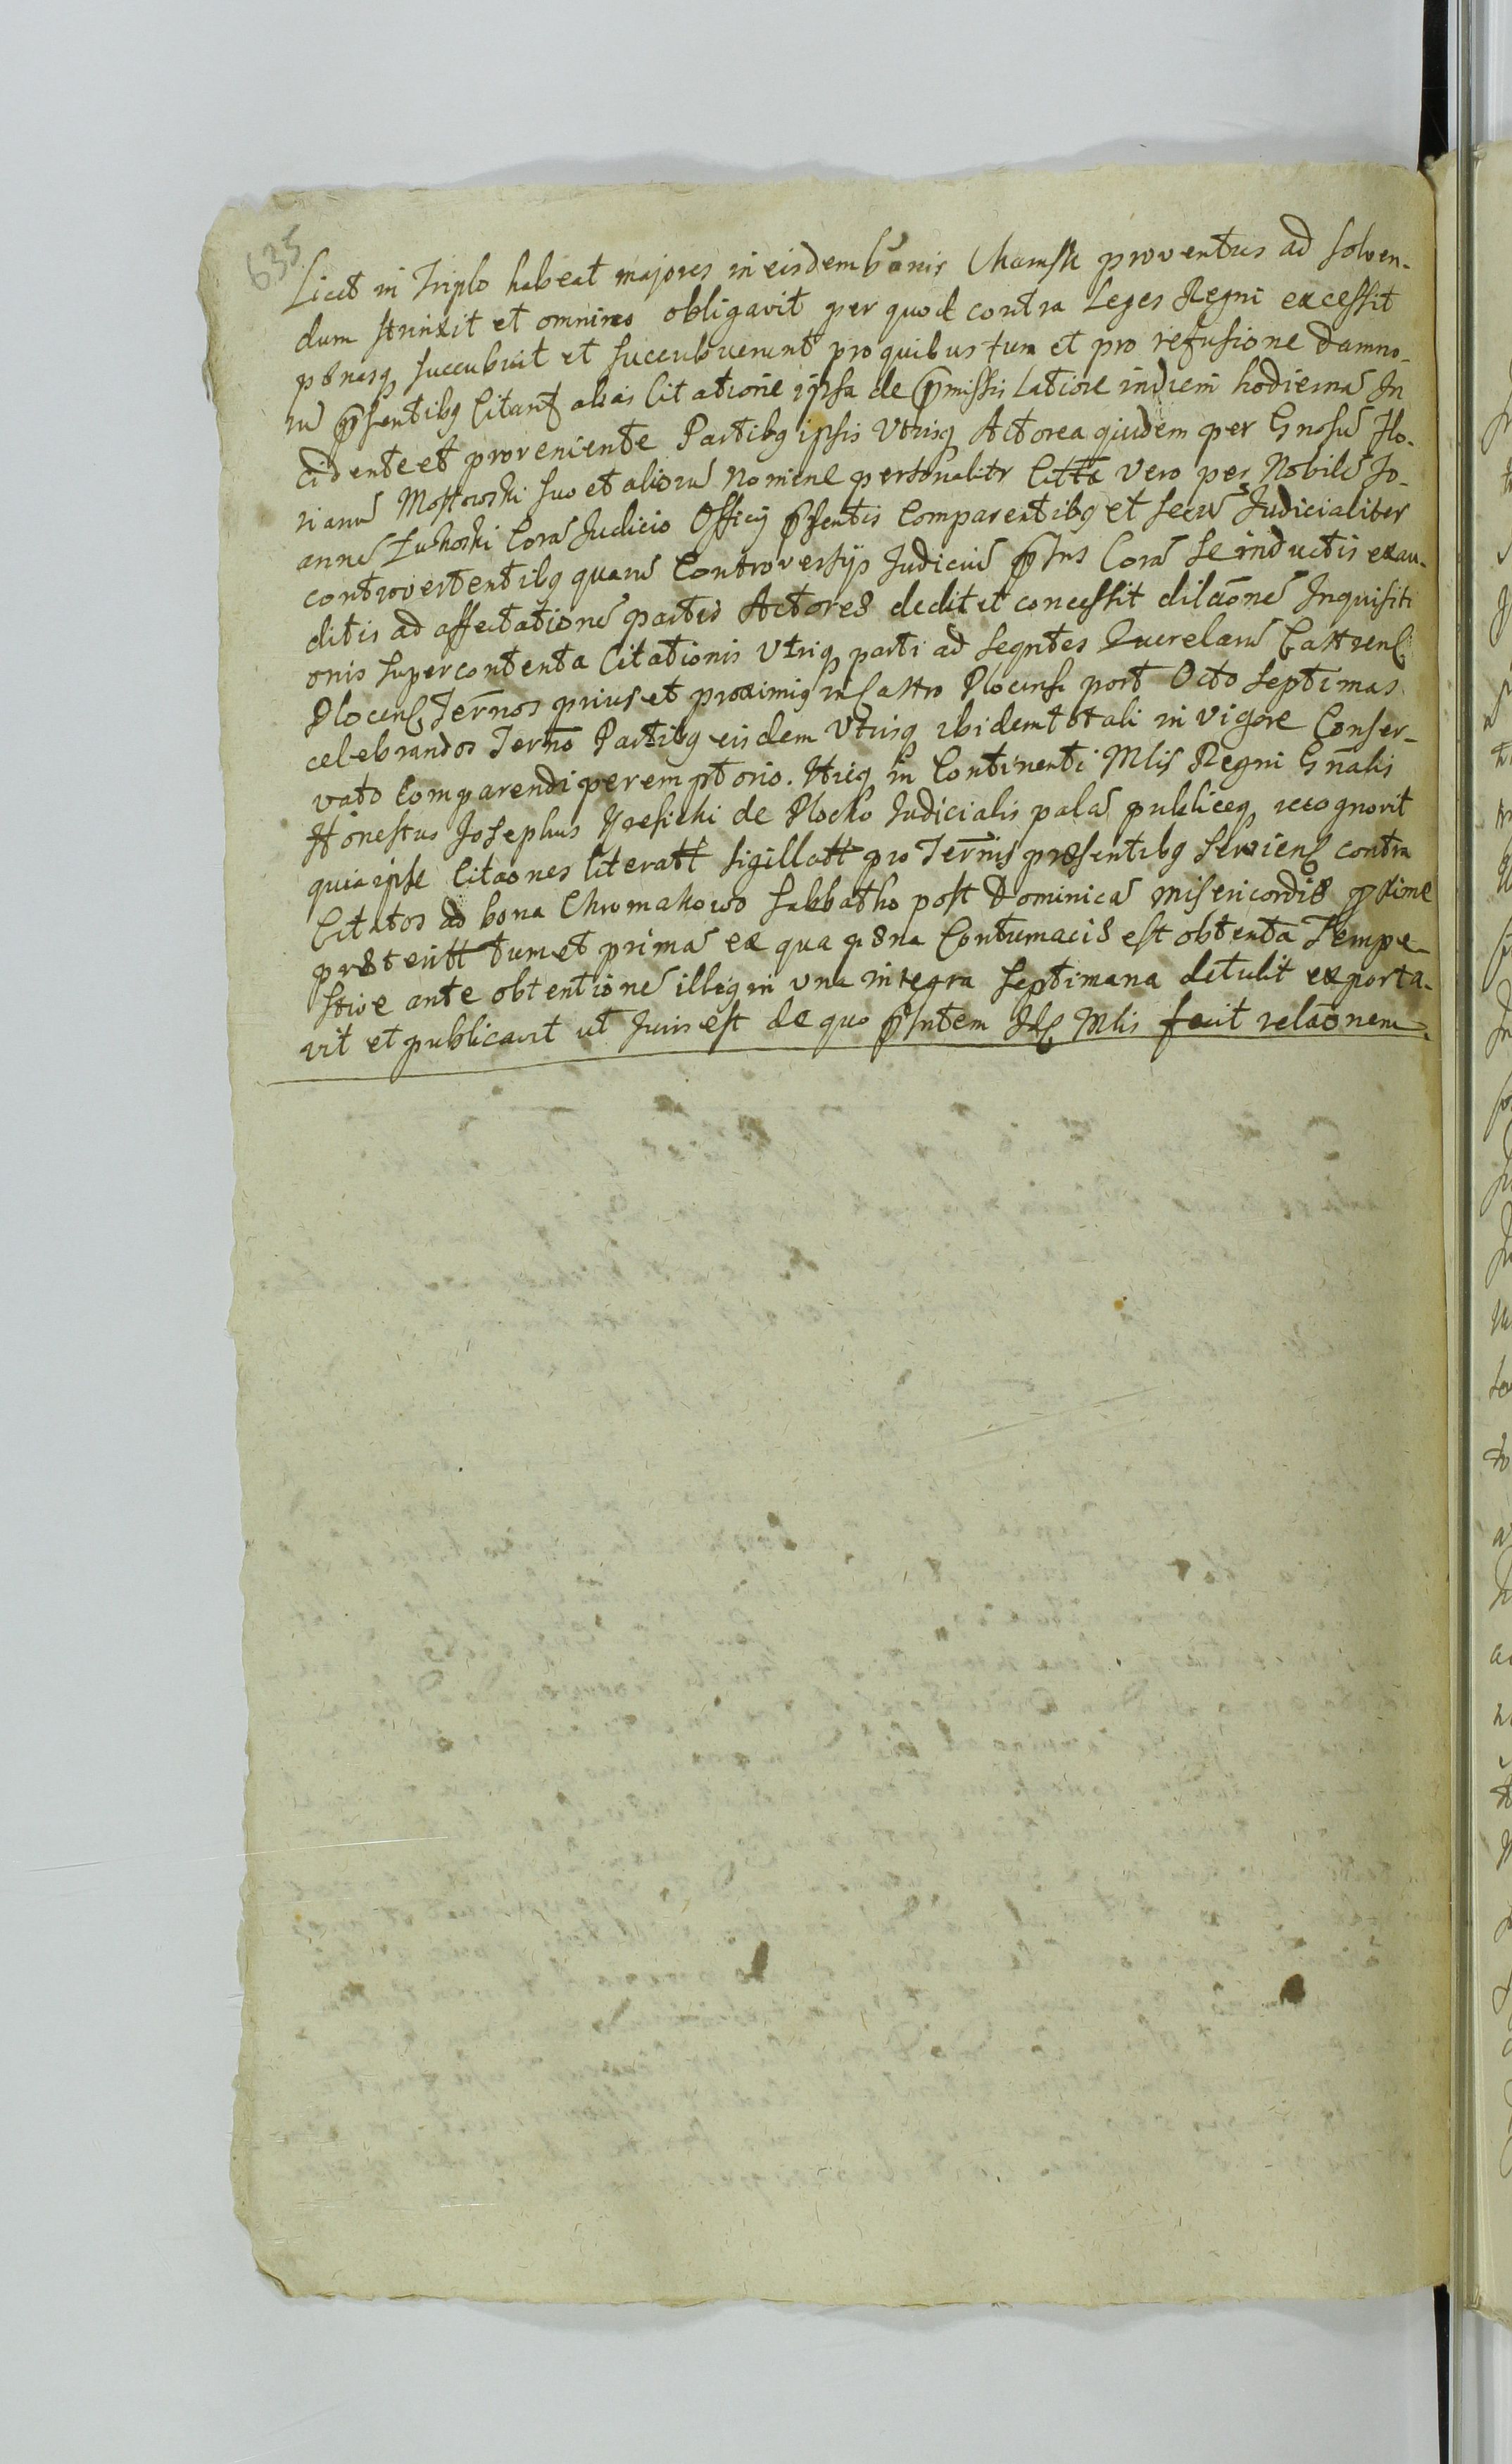 635
Licet in Triplo habeat majores in eisdem bonis Chamsk proventus ad solven-
dum strinxit et omnino obligavit per quod contra Leges Regni excessit
pœnasq succubuit et succubuerunt pro quibus tum et pro refusione damno-
rū pr̄sentibq Citant alias Citatione ipsa de pr̄missis Latiore in diem hodiernā In
cidente et proveniente Partibq ipsis Utrisq Actorea quidem per Gnosū Flo-
rianū Mostowski suo et aliorū Nomine personalitr Citta vero per Nobilē Jo-
annē Łuskoski Corā Judicio Officij pr̄sentis Comparentibq et secū Judicialiter
controvertentibq quarū Controversijs Judiciū pr̄sns Corā se inductis exau-
ditis ad affectationē partis Actoreæ dedit et concessit dilaonē Inquisiti
onis super contenta Citationis Utriq parti ad seqntes Querelarū Castrens
Plocens Ternos prius et proximiq in Castro Plocensi post Octo septimas
celebrandos Terno Partibq eisdem Utrisq ibidem totali in vigore Conser-
vato Comparendi peremptorio. Hicq in Continenti Mlis Regni Gnalis
Honestus Josephus de Plocko Judicialis palā publiceq recognovit
quia ipse Citaones literatt sigillatt pro Ternis præsentibq serviens contra
Citatos ad bona Chromakowo Sabbatho post Dominicā misericordiæ pxime
præteritt tum et primā ex qua pœna Contumaciæ est obtenta Tempe-
stive ante obtentionē illiq in una integra septimana detulit exporta-
vit et publicavit ut Juris est de quo pr̄sntem Mlis fecit relaonem